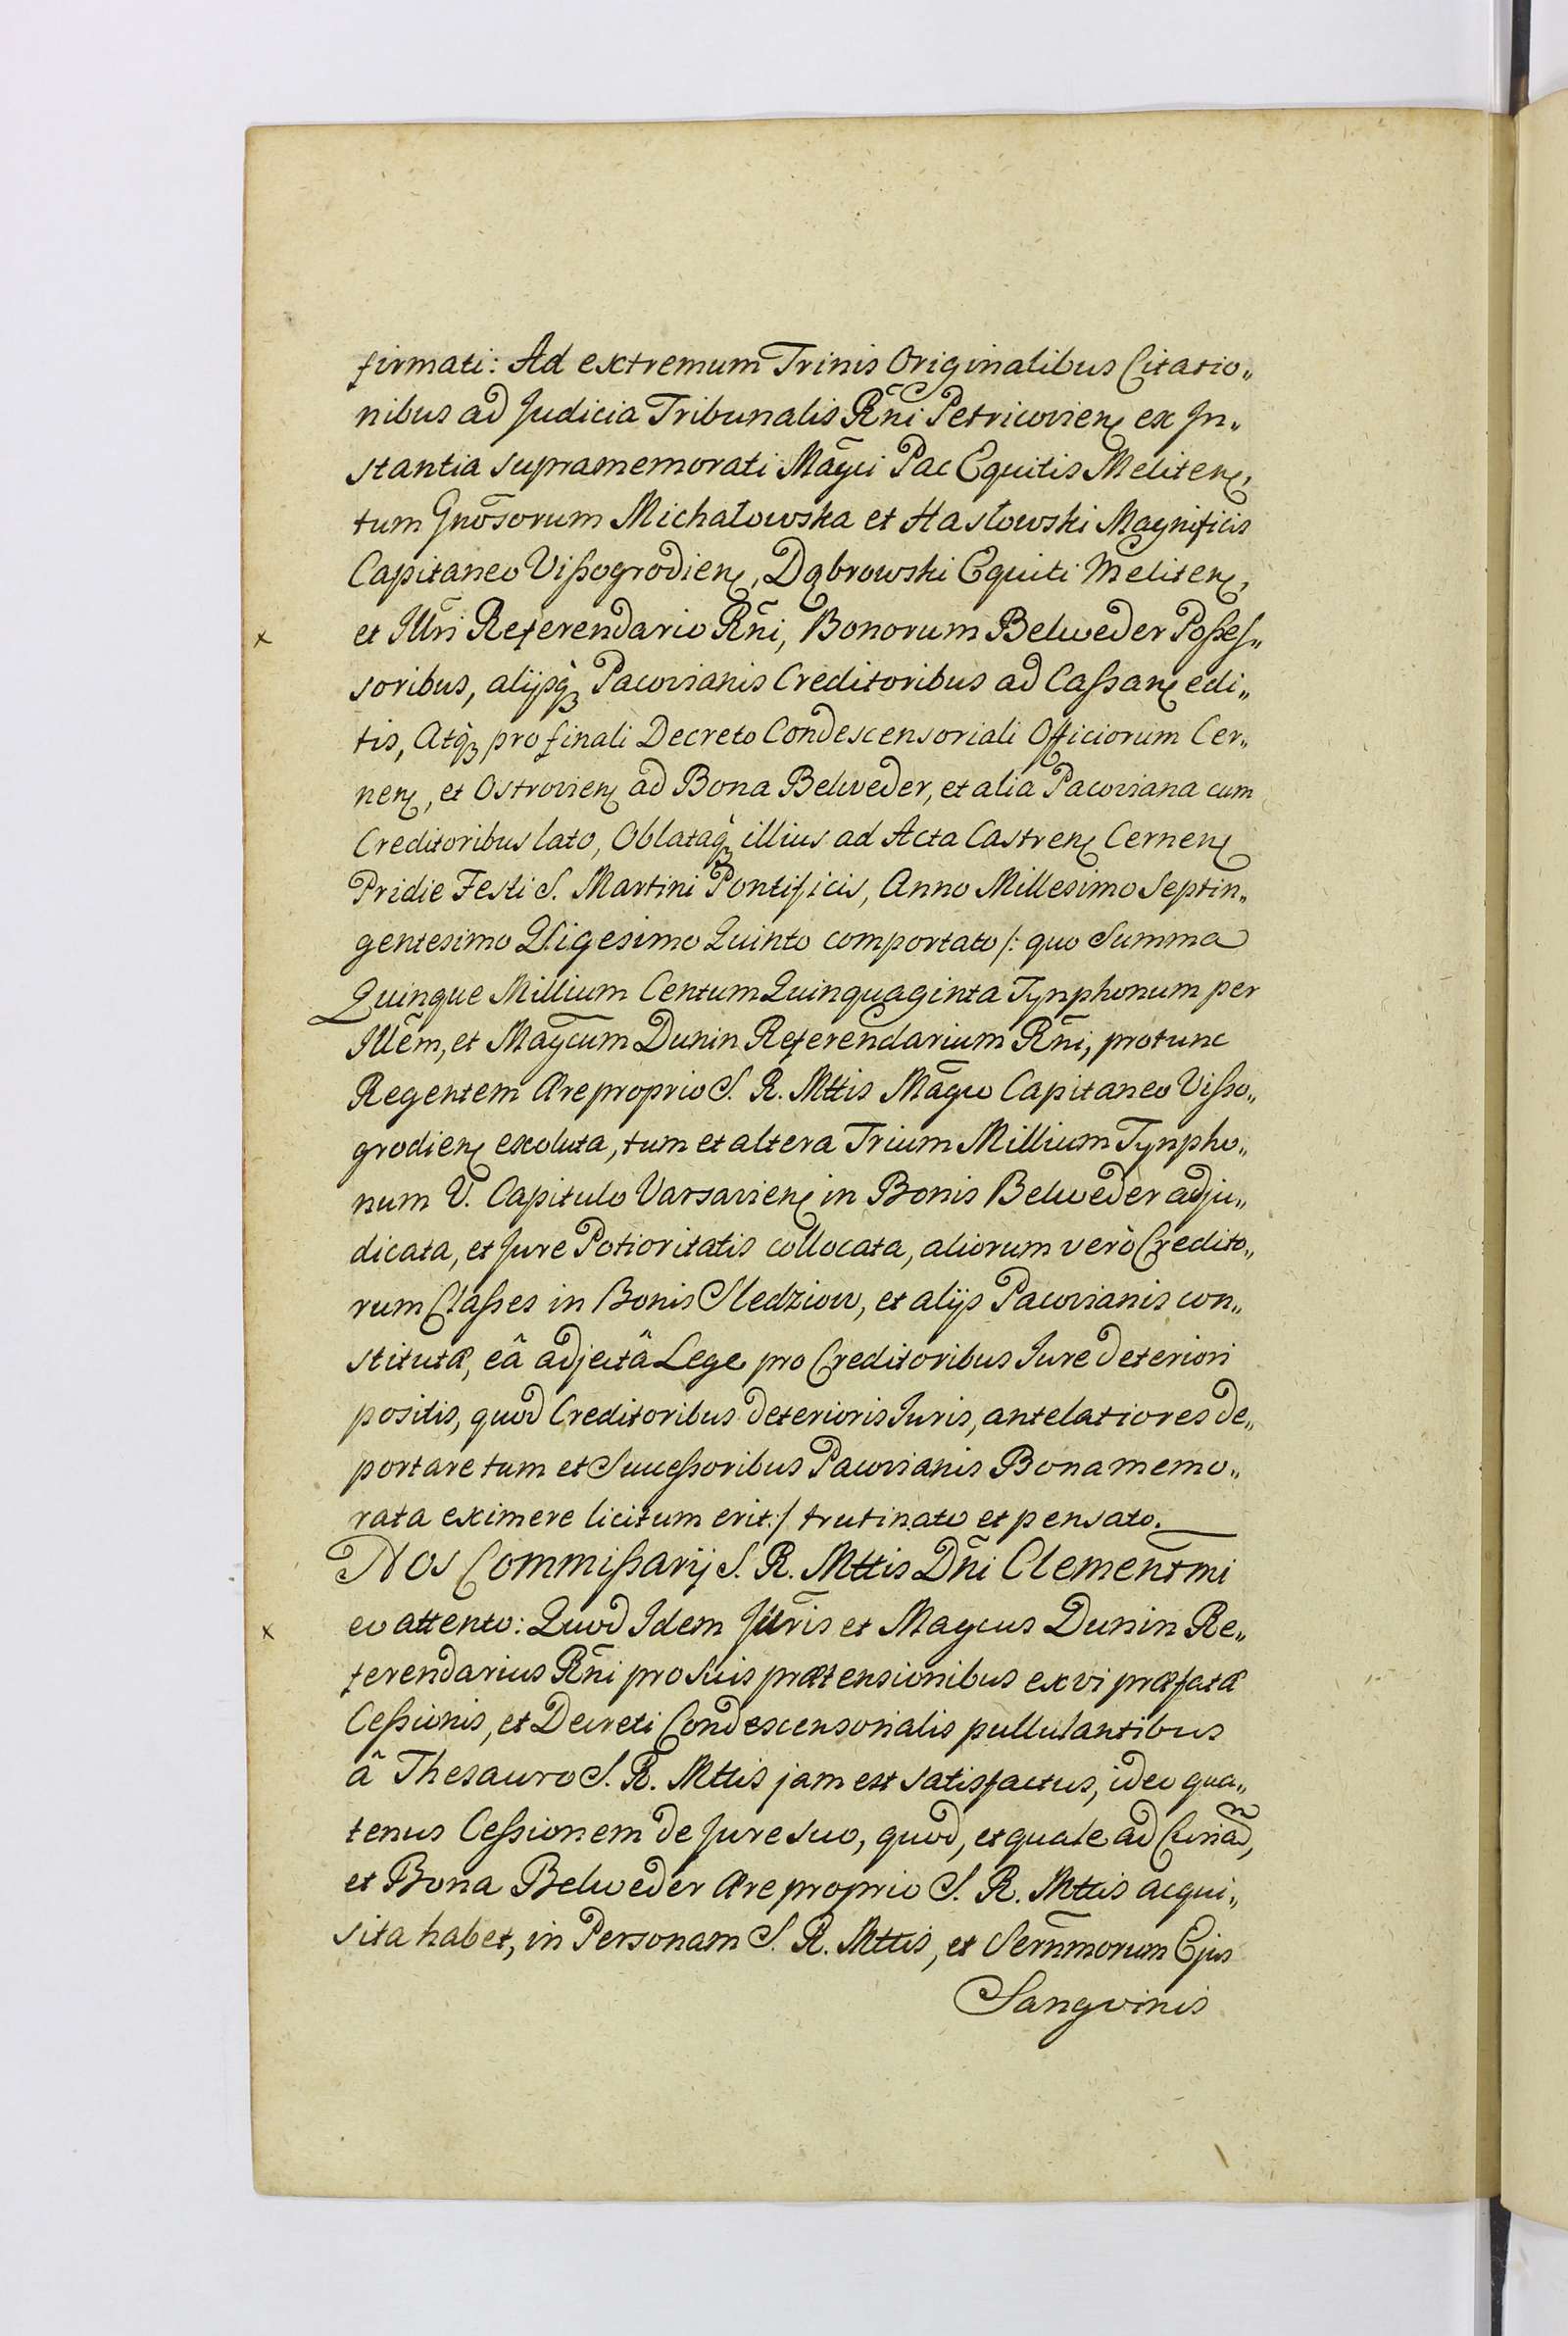 firmati: Ad extremum Trinis Originalibus Citatio„
nibus ad Judicia Tribunalis Rñi Petricovien ex In„
stantia supramemorati Magci Pac Equitis Meliten,
tum Gnosorum Michałowska et Hasłowski Magnificis
Capitaneo Vißogrodien, Dąbrowski Equiti Meliten,
x et Illri Referendario Rñi, Bonorum Belweder Poßeſ„
soribus, alijsq̀ Pacovianis Creditoribus ad Caßan edi„
tis, Atq̀ pro finali Decreto Condescensoriali Officiorum Cer„
nen, et Ostrovien ad Bona Belweder, et alia Pacoviana cum
Creditoribus lato, Oblataq̀ illius ad Acta Castren Cernen
Pridie Festi S. Martini Pontificis, Anno Millesimo Septin„
gentesimo Vigesimo Quinto comportato /: quo Summa
Quinque Millium Centum Quinquaginta Tynphonum per
Illem, et Magcum Dunin Referendarium Rñi, protunc
Regentem Ære proprio S. R. Mttis Magco Capitaneo Vißo„
grodien exoluta, tum et altera Trium Millium Tynpho„
num V. Capitulo Varsavien in Bonis Belweder adju„
dicata, et Jure Potioritatis collocata, aliorum verò Credito„
rum Claßes in Bonis Sledziow, et alijs Pacovianis con„
stitutæ, eâ adjectâ Lege pro Creditoribus Jure deteriori
positis, quod Creditoribus deterioris Juris, antelatiores de„
portare tum et Succeßoribus Pacovianis Bona memo„
rata eximere licitum erit:/ trutinato et pensato.
Nos Commißarij S. R. Mttis Dñi Clementmi
x eo attento: Quod Idem Jllris et Magcus Dunin Re„
ferendarius Rñi pro suis prætensionibus ex vi præfatæ
Ceßionis, et Decreti Condescensorialis pullulantibus
â Thesauro S. R. Mttis jam est satisfactus, ideo qua„
tenus Ceßionem de Jure suo, quod, et quale ad Curiam,
et Bona Belweder Ære proprio S. R. Mttis acqui„
sita habet, in Personam S. R. Mttis, et Sernmorum Ejus
Sangvinis